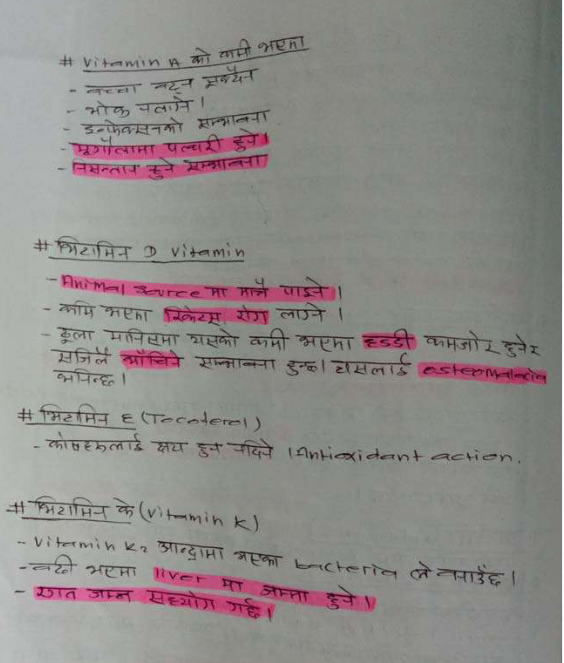 # Vitamin A को कमी भएमा
- बच्चा बढ्न सक्दैन
- भोक नलाग्ने ।
- इन्फेक्सनको सम्भावना
- मृगौलामा पत्थरी हुने ।
- निसन्तान हुने सम्भावना
# भिटामिन D Vitamin
- Animal source मा मात्रै पाइने ।
- कमि भएमा रिकेट्स रोग लाग्ने ।
- ठूला मानिसमा यसको कमी भएमा हड्डी कमजोर हुने र
सजिलै भाँचिने सम्भावना हुन्छ । यसलाई osteomalacia
भनिन्छ ।
# भिटामिन E (Tocoferol)
- कोषहरूलाई क्षय हुन नदिने । Antioxidant action.
# भिटामिन के (Vitamin K)
- Vitamin K2 आन्द्रामा भएका bacteria ले बनाउँछ ।
- बढी भएमा liver मा जम्मा हुने ।
- रगत जम्न सहयोग गर्छ ।